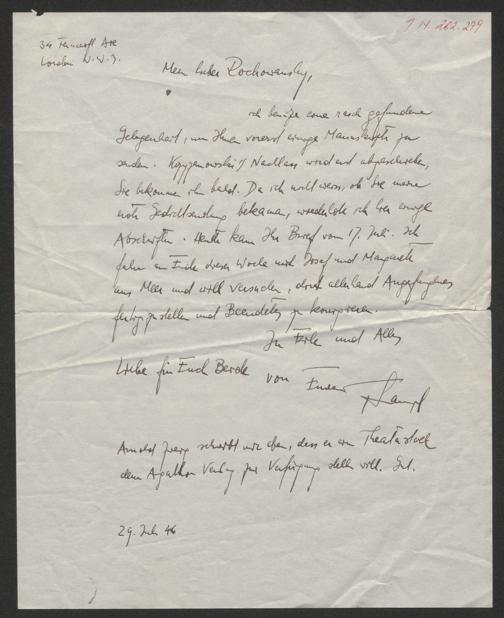 I.N. 202.279
34 Ferncroft Ave
London N.W.3.
Mein lieber Rochowansky,
ich benütze eine rasch gefundene
Gelegenheit, um Ihnen vorerst einige Manuskripte zu
senden. Nachlass wird erst abgeschrieben,
Sie bekommen ihn bald. Da ich nicht weiss, ob Sie meine
erste Gedichtsendung bekamen, wiederhole ich hier einige
Abschriften. Heute kam Ihr Brief vom 17. Juli. Ich
fahre am Ende dieser Woche mit Josef und Margarete
ans Meer und will versuchen, dort allerhand Angefangenes
fertigzustellen und Beendetes zu korrigieren.
In Eile und Alles
Liebe für Euch Beide von Eurem
Arnold Zweig schreibt mir eben, dass er ein Theaterstück
dem Agathon Verlag zur Verfügung stellen will. Gut.
29. Juli 46